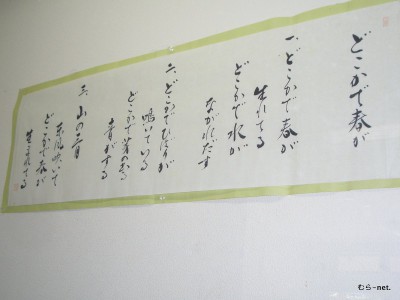 どこかで春が
一、どこかで春が
生れてる
どこかで水が
ながれだす
二、どこかでひばりが
鳴いている
どこかで芽の出る
音がする
三、山の三月
東風吹いて
どこかで春が
生まれてる
むらｰnet.